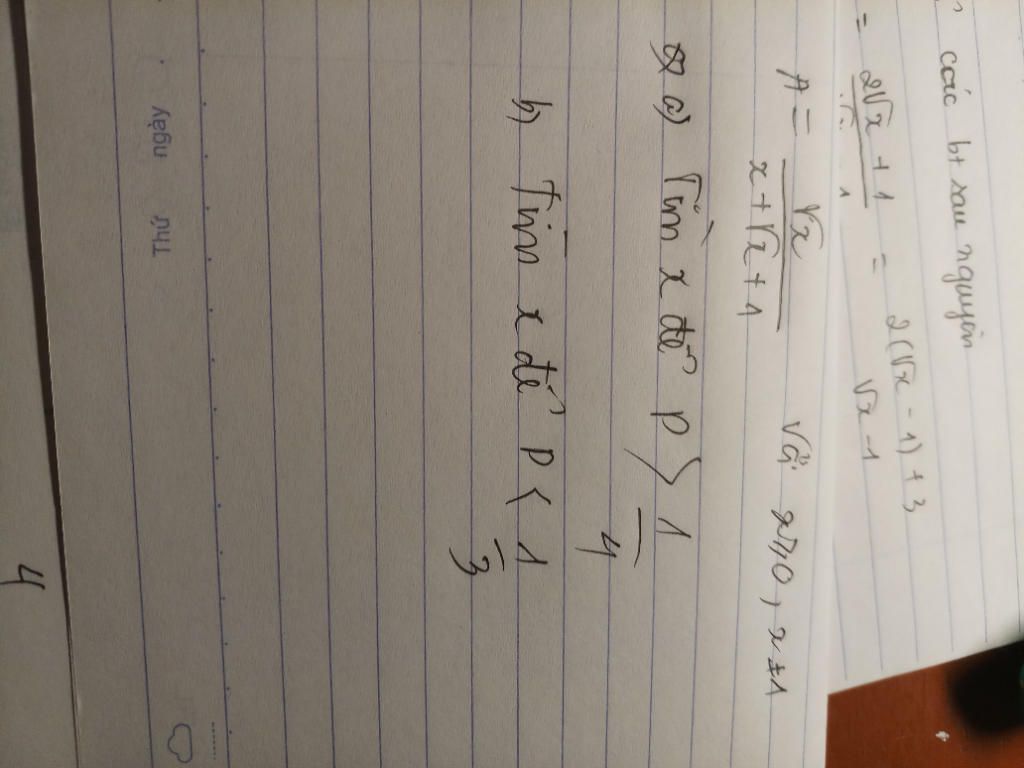 các bt sau nguyên
= 2√x + 1 = 2(√x - 1) + 3
√x - 1
A = √x / x + √x + 1 Với x ≥ 0, x ≠ 1
a) Tìm x để P > 1/4
b) Tìm x để P < 1/3
Thứ ngày
4